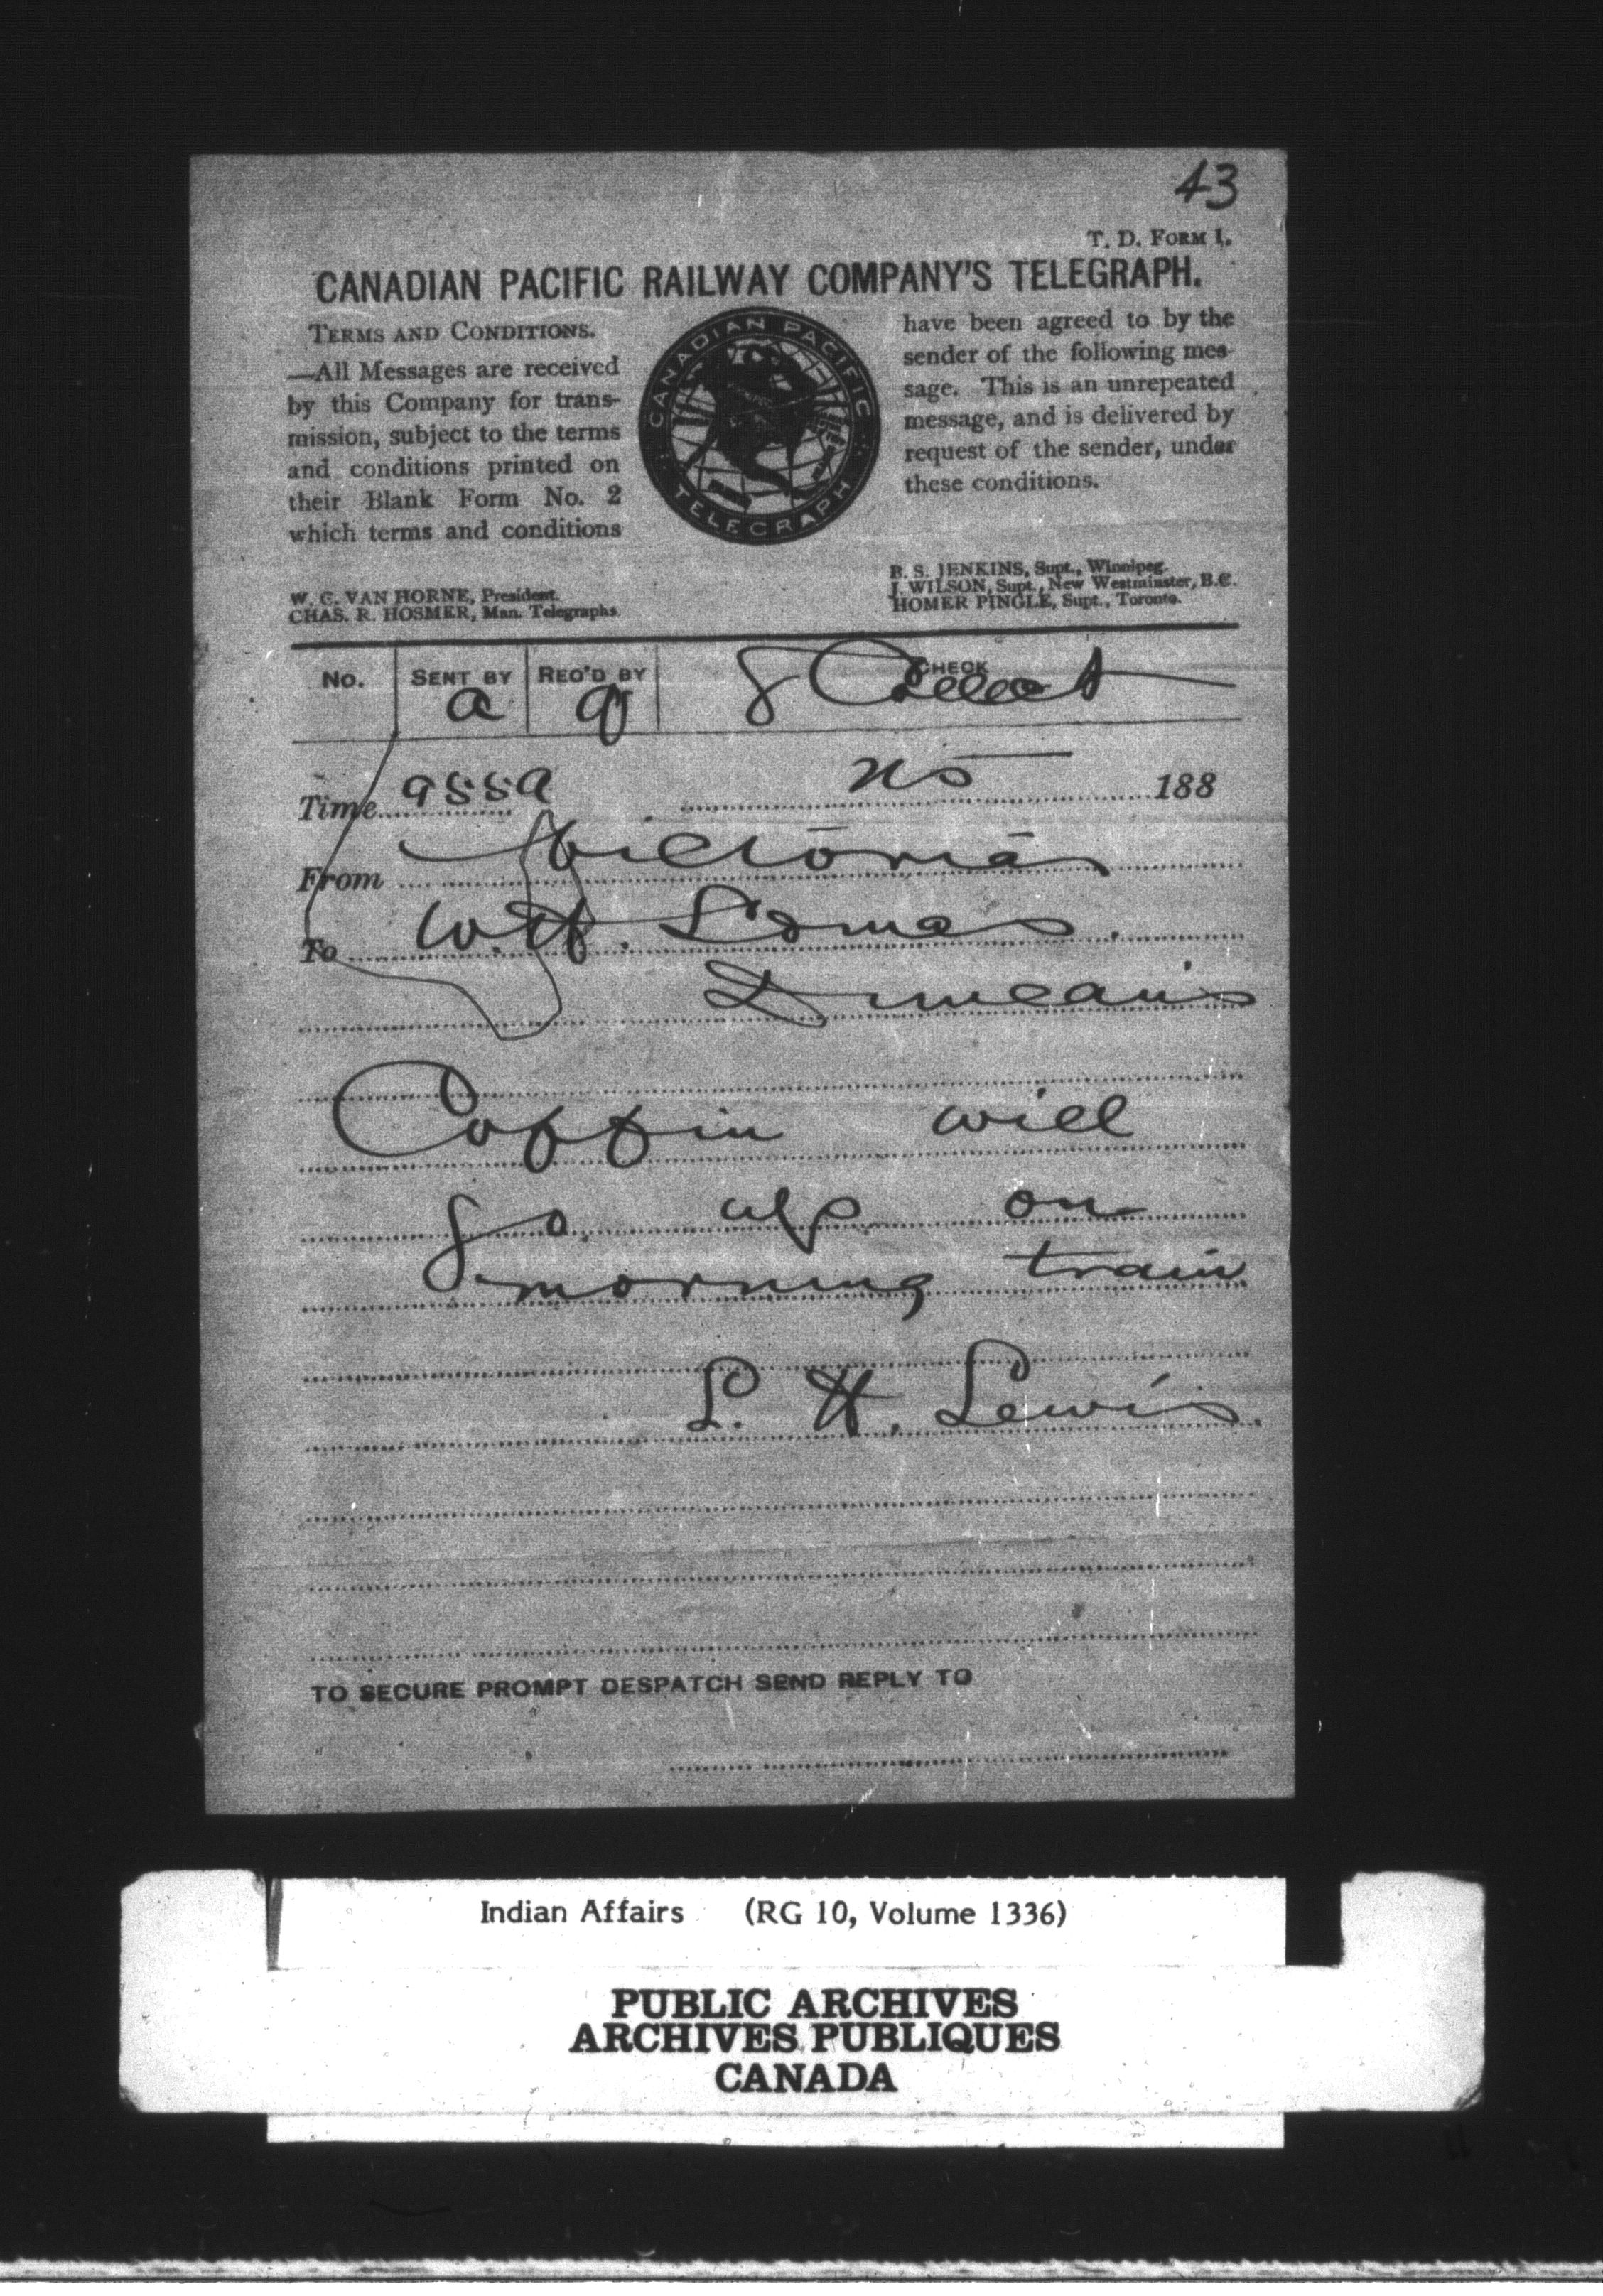 43
T. D. FORM 1.
CANADIAN PACIFIC RAILWAY COMPANY'S TELEGRAPH.
TERMS AND CONDITIONS.
—All Messages are received
by this Company for trans-
mission, subject to the terms
and conditions printed on
their Blank Form No. 2
which terms and conditions
CANADIAN PACIFIC
TELEGRAPH
have been agreed to by the
sender of the following mes-
sage. This is an unrepeated
message, and is delivered by
request of the sender, under
these conditions.
W. C. VAN HORNE, President.
CHAS. R. HOSMER, Man. Telegraphs
B. S. JENKINS, Supt., Winnipeg.
J. WILSON, Supt., New Westminster, B.C.
HOMER PINGLE, Supt., Toronto.
No. SENT BY REC'D BY CHECK
a 8 Collect
Time 188
From Victoria
To W. H. Lomas.
Duncans
Coffin will
go up on
morning train
L. H. Lewis.
TO SECURE PROMPT DESPATCH SEND REPLY TO
Indian Affairs (RG 10, Volume 1336)
PUBLIC ARCHIVES
ARCHIVES PUBLIQUES
CANADA